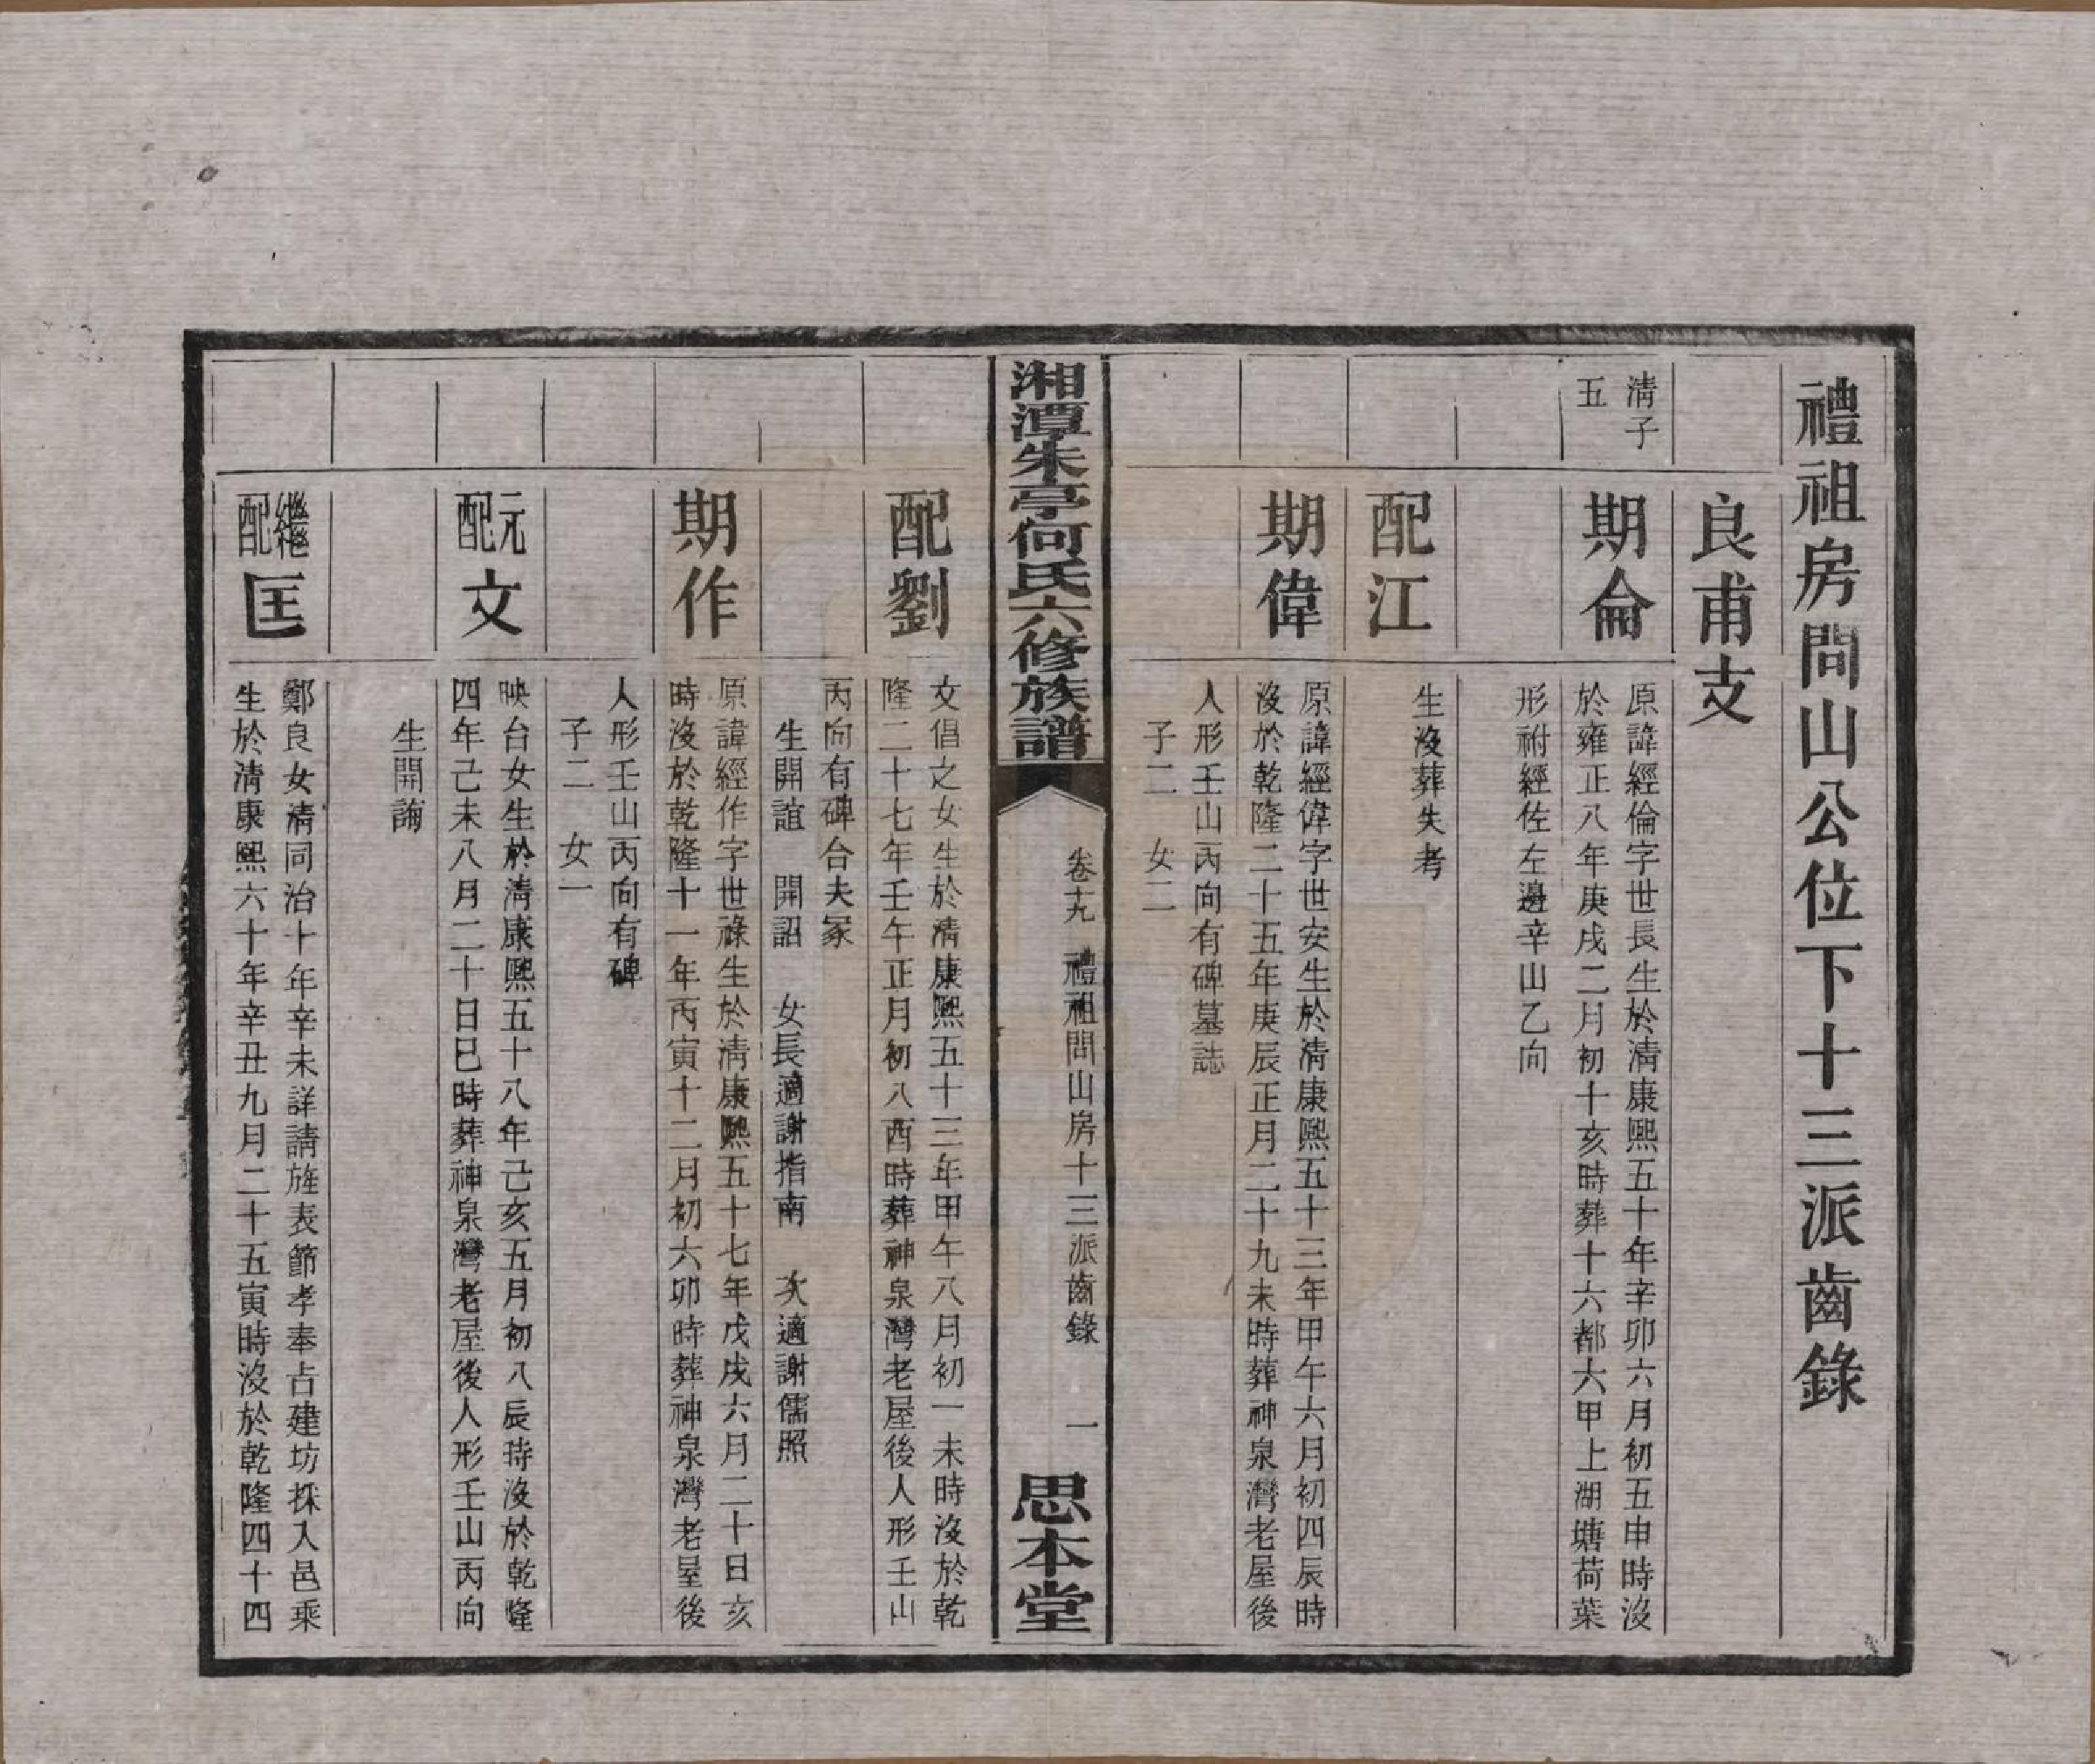 禮祖房問山公位下十三派齒錄
良甫支
清子
五
期倫
原諱經倫字世長生於清康熙五十年辛卯六月初五申時沒
於雍正八年庚戌二月初十亥時葬十六都六甲上湖塘荷葉
形祔經佐左邊辛山乙向
配江
生沒葬失考
期偉
原諱經偉字世安生於清康熙五十三年甲午六月初四辰時
沒於乾隆二十五年庚辰正月二十九未時葬神泉灣老屋後
人形壬山丙向有碑墓誌
子二　女二
湘潭朱亭何氏六修族譜
卷十九　禮祖問山房十三派齒錄　一
思本堂
配劉
文倡之女生於清康熙五十三年甲午八月初一未時沒於乾
隆二十七年壬午正月初八酉時葬神泉灣老屋後人形壬山
丙向有碑合夫冢
生開誼　開詔　女長適謝指南　次適謝儒照
期作
原諱經作字世祿生於清康熙五十七年戊戌六月二十日亥
時沒於乾隆十一年丙寅十二月初六卯時葬神泉灣老屋後
人形壬山丙向有碑
子二　女一
元配文
映台女生於清康熙五十八年己亥五月初八辰時沒於乾隆
四年己未八月二十日巳時葬神泉灣老屋後人形壬山丙向
生開讷
繼配匡
鄭良女清同治十年辛未詳請旌表節孝奉占建坊採入邑乘
生於清康熙六十年辛丑九月二十五寅時沒於乾隆四十四